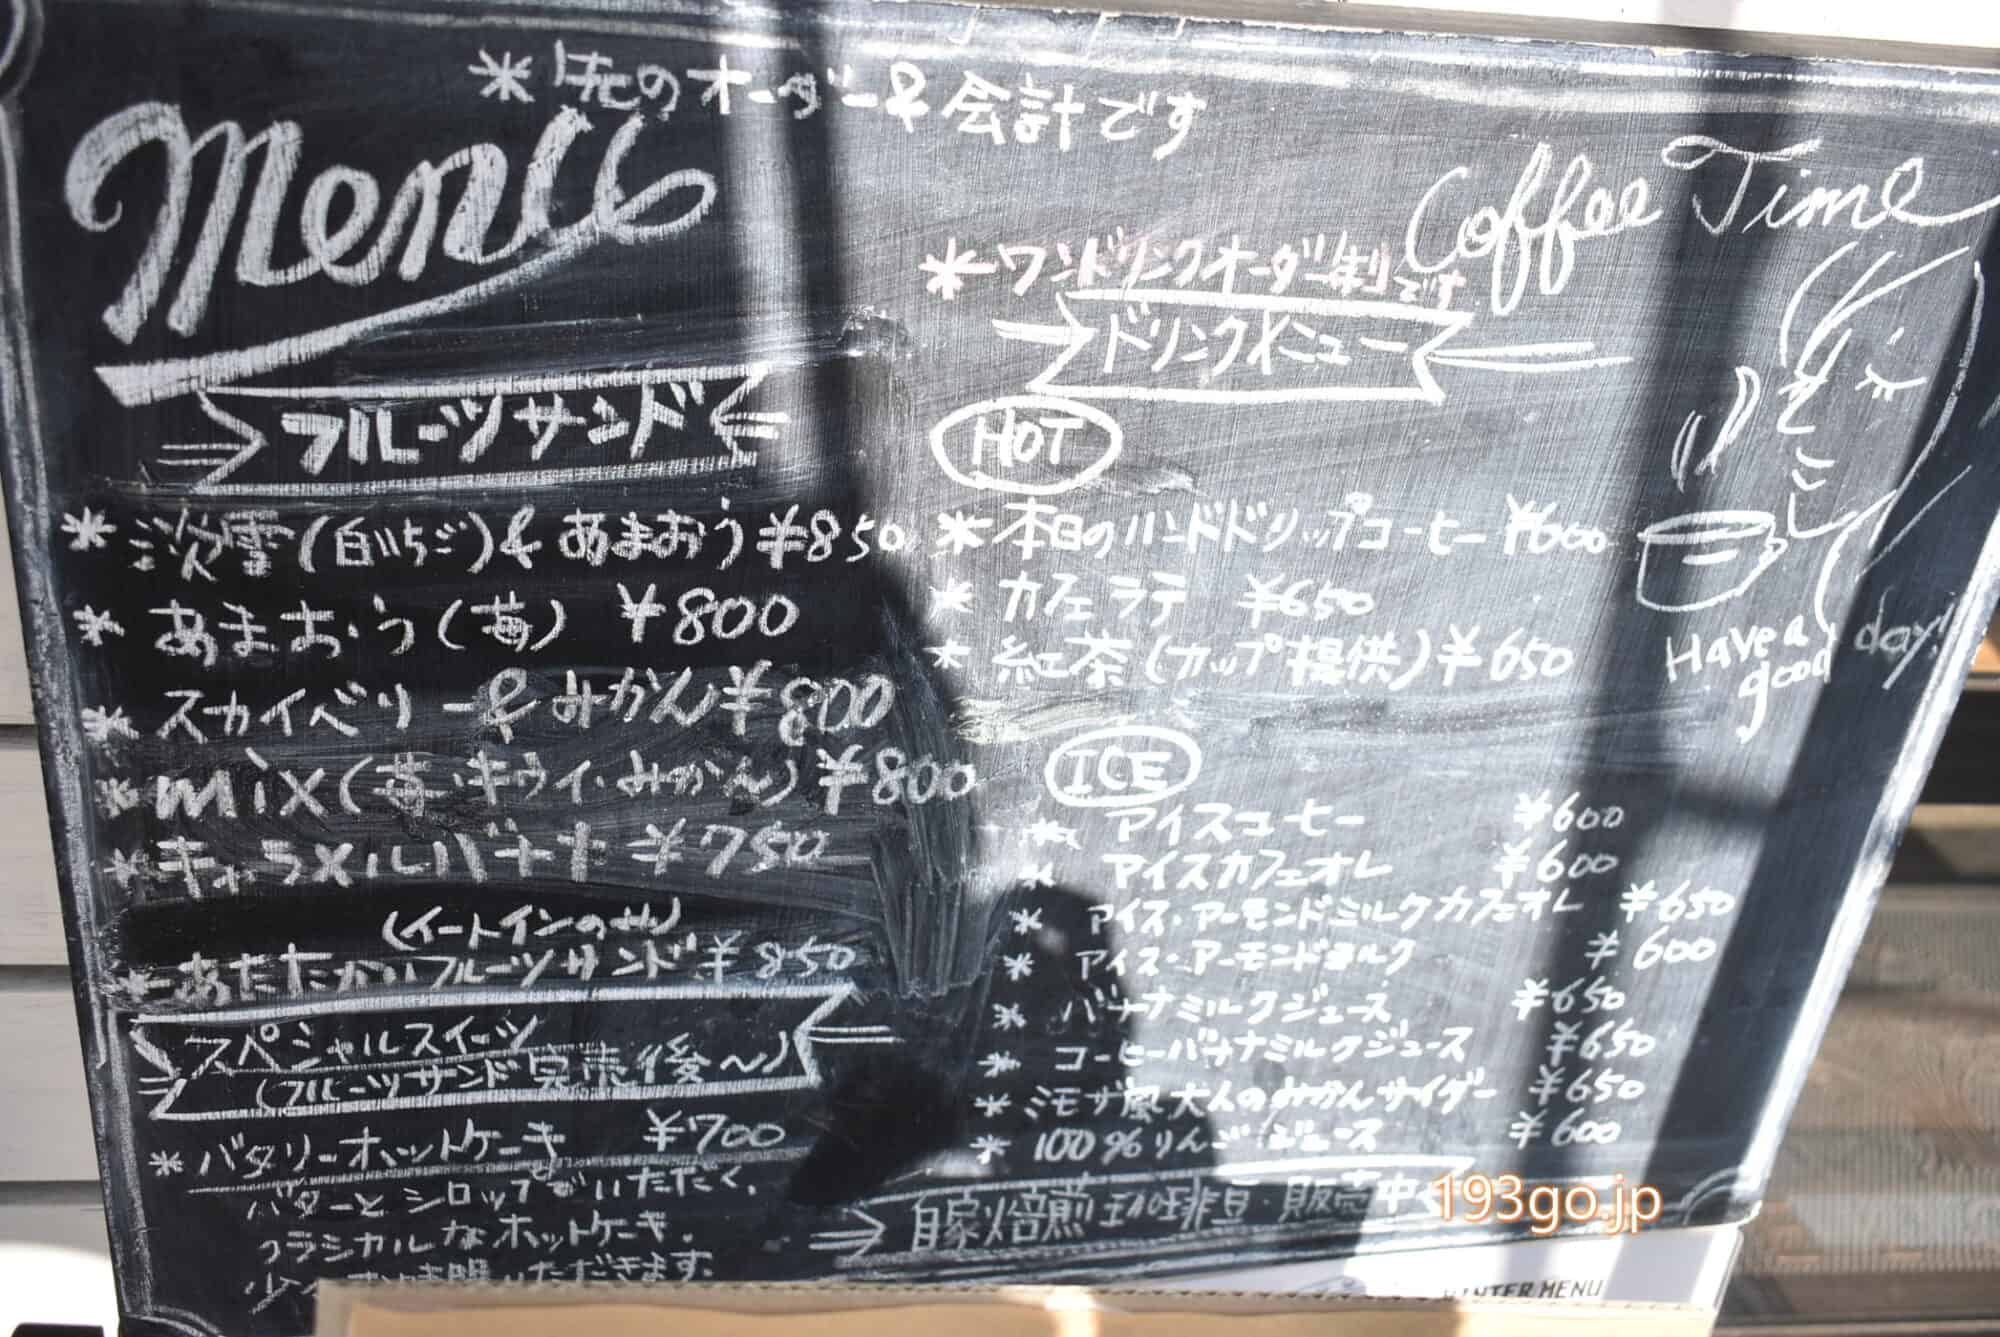 *先のオーダー&会計です
Menu
フルーツサンド
*淡雪(白いちご)&あまおう¥850
*あまおう(苺) ¥800
*スカイベリー&みかん¥800
*mix(苺・キウイ・みかん)¥800
*キャラメルバナナ¥750
(イートインのみ)
*あたたかいフルーツサンド¥850
スペシャルスイーツ
(フルーツサンド完売後〜)
*バタリーホットケーキ ¥700
バターとシロップでいただく、
クラシカルなホットケーキ。
いただきます。
Coffee Time
*ワンドリンクオーダー制です
ドリンクメニュー
HOT
*本日のハンドドリップコーヒー ¥600
*カフェラテ ¥650
*紅茶(カップ提供)¥650
ICE
*アイスコーヒー ¥600
*アイスカフェオレ ¥600
*アイス・アーモンドミルクカフェオレ ¥650
*アイス・アーモンドミルク ¥600
*バナナミルクジュース ¥650
*コーヒーバナナミルクジュース ¥650
*ミモザ風大人のみかんサイダー ¥650
*100%りんごジュース ¥600
自家焙煎珈琲豆・販売中
Have a
good day!
193go.jp
WINTER MENU